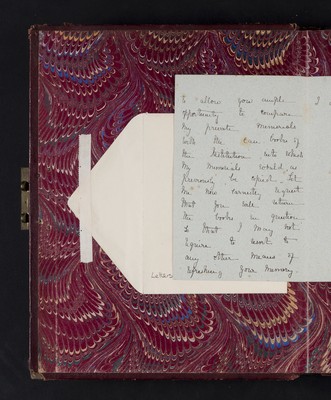 to allow you ample
opportunity to compare
my private Memorials
with the Case books of
the Institution into which
my Memorials would as
previously be copied. Let
me now earnestly request
that you will return
the books in question
so that I may not
require to resort to
any other means of
refreshing your Memory.
I
Letters